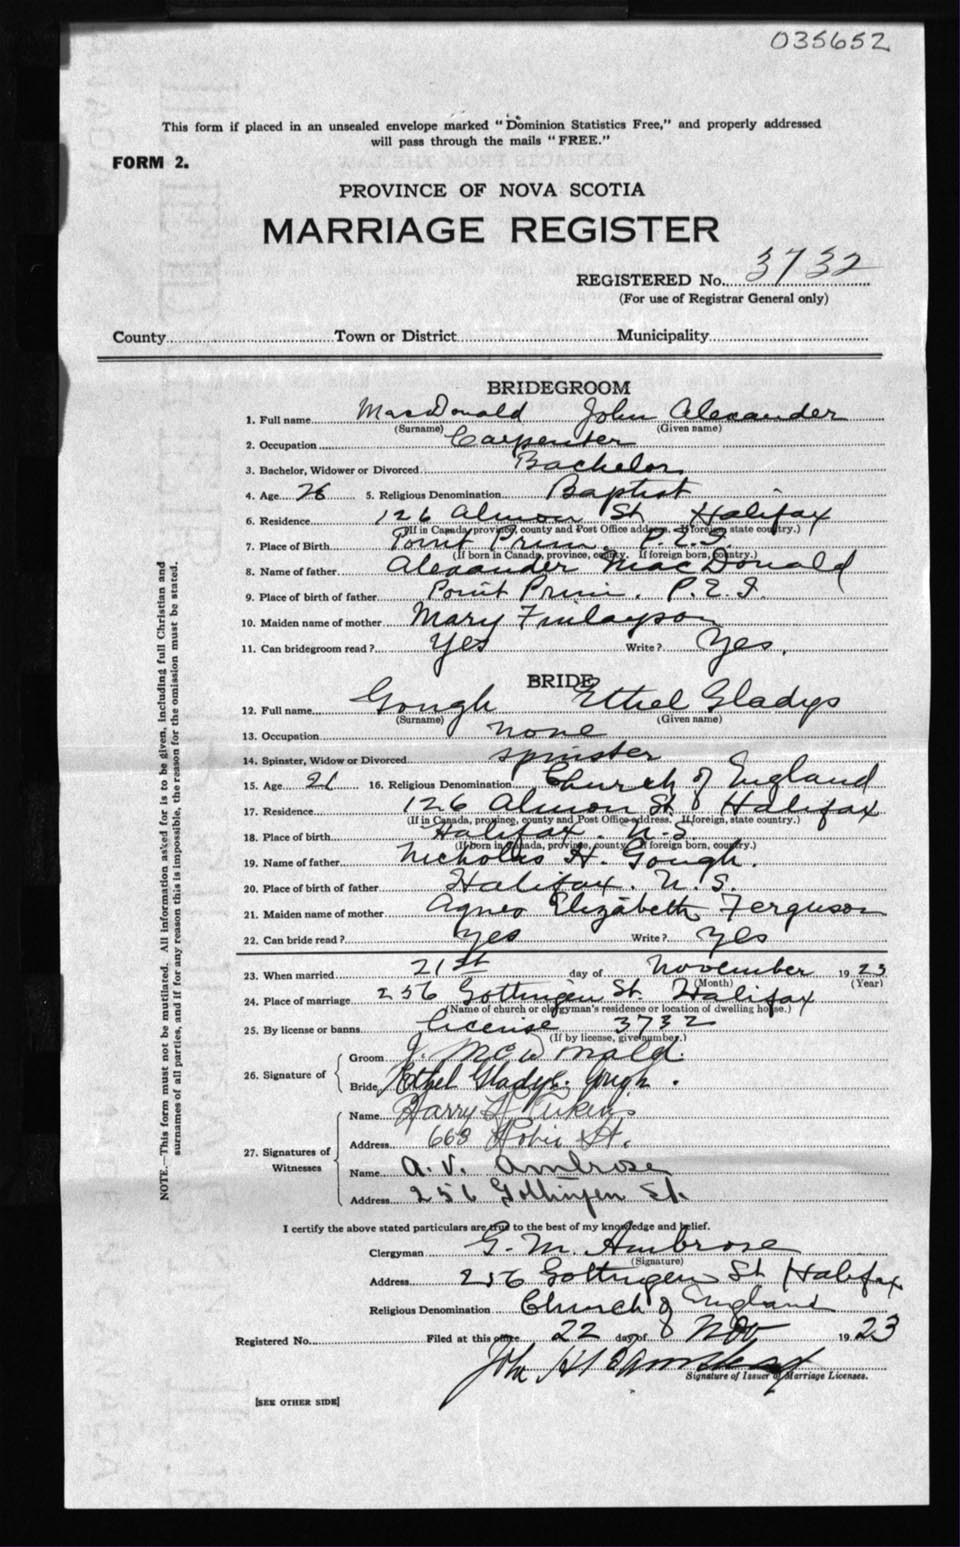 035652
This form if placed in an unsealed envelope marked "Dominion Statistics Free," and properly addressed
will pass through the mails "FREE."
FORM 2.
PROVINCE OF NOVA SCOTIA
MARRIAGE REGISTER
REGISTERED No. 3732
(For use of Registrar General only)
County Town or District Municipality
BRIDEGROOM
1. Full name MacDonald John Alexander
(Surname) (Given name)
2. Occupation Carpenter
3. Bachelor, Widower or Divorced Bachelor
4. Age 26 5. Religious Denomination Baptist
6. Residence 126 Almon St Halifax
(If in Canada, province, county and Post Office address. If foreign, state country.)
7. Place of Birth Point Prim P.E.I.
(If born in Canada, province, county. If foreign born, country.)
8. Name of father Alexander MacDonald
9. Place of birth of father Point Prim. P.E.I.
10. Maiden name of mother Mary Finlayson
11. Can bridegroom read? Yes Write? Yes.
BRIDE
12. Full name Gough Ethel Gladys
(Surname) (Given name)
13. Occupation none
14. Spinster, Widow or Divorced spinster
15. Age 21 16. Religious Denomination Church of England
17. Residence 126 Almon St Halifax
(If in Canada, province, county and Post Office address. If foreign, state country.)
18. Place of birth Halifax. N.S.
(If born in Canada, province, county. If foreign born, country.)
19. Name of father Nicholas H. Gough.
20. Place of birth of father Halifax. N.S.
21. Maiden name of mother Agnes Elizabeth Ferguson
22. Can bride read? Yes Write? Yes
23. When married 21st day of November 1923
(Month) (Year)
24. Place of marriage 256 Gottingen St. Halifax
(Name of church or clergyman's residence or location of dwelling house.)
25. By license or banns License 3732
(If by license, give number.)
26. Signature of Groom J. McDonald.
Bride Ethel Gladys. Gough.
27. Signatures of Witnesses Name Harry
Address 663 Robie St.
Name A. V. Ambrose
Address 256 Gottingen St.
I certify the above stated particulars are true to the best of my knowledge and belief.
Clergyman G. M. Ambrose
(Signature)
Address 256 Gottingen St Halifax
Religious Denomination Church of England
Registered No. Filed at this office 22 day of Nov 1923
John H
Signature of Issuer of Marriage Licenses.
[SEE OTHER SIDE]
NOTE.—This form must not be mutilated. All information asked for is to be given, including full Christian and
surnames of all parties, and if for any reason this is impossible, the reason for the omission must be stated.